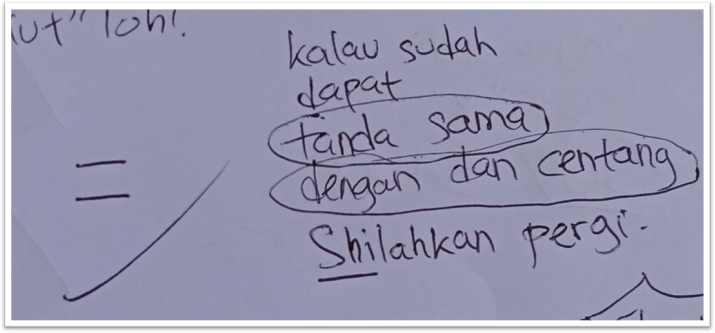 iut" loh!
kalau sudah
dapat
tanda sama
dengan dan centang
Shilahkan pergi.
=